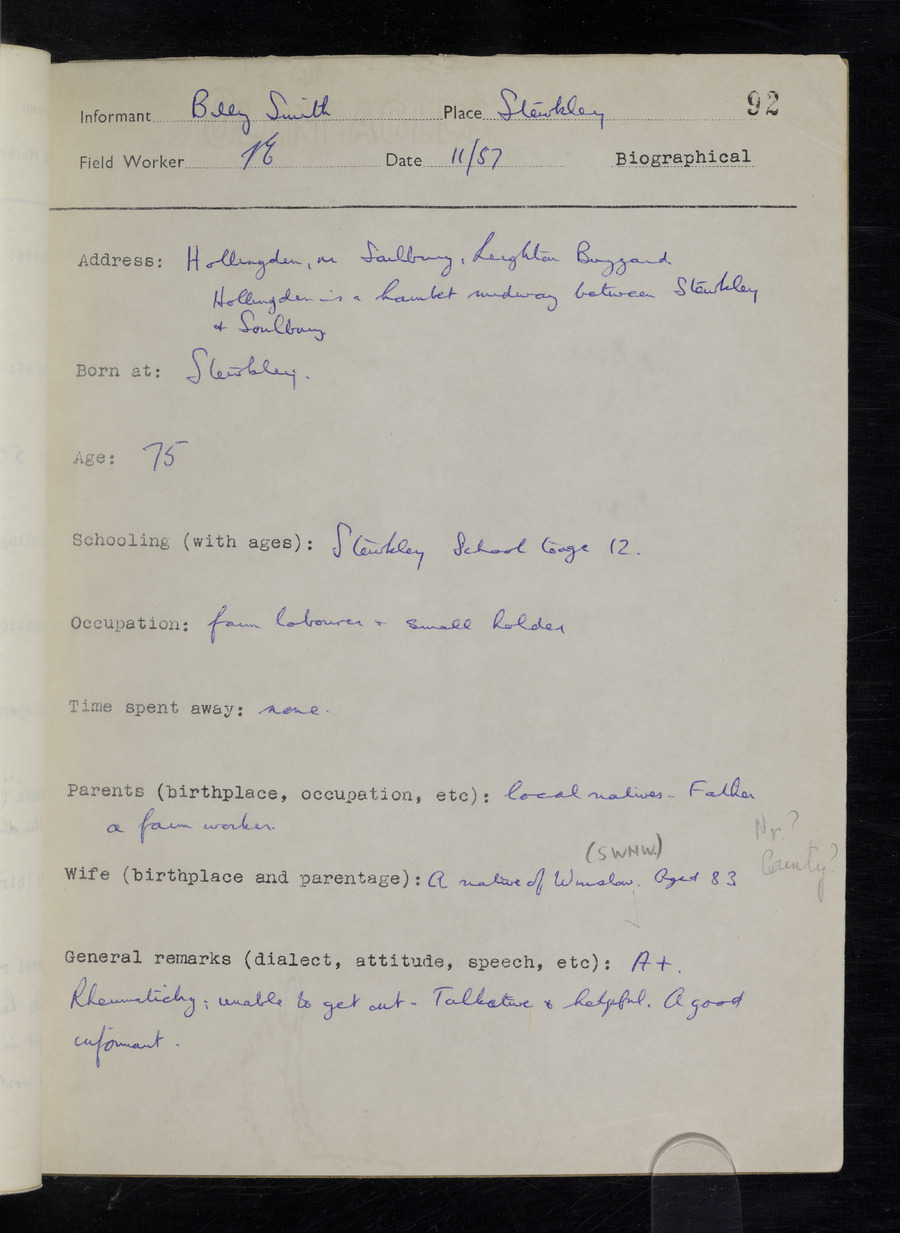 Informant Billy Smith Place Stewkley 92
Field Worker Date 11/57 Biographical
Address: Hollingden, nr Soulbury, Leighton Buzzard
Hollingden is a hamlet midway between Stewkley
& Soulbury
Born at: Stewkley.
Age: 75
Schooling (with ages): Stewkley School to age 12.
Occupation: farm labourer & small holder
Time spent away: none.
Parents (birthplace, occupation, etc): local natives - Father
a farm worker.
Nr.?
County?
(SWNW.)
Wife (birthplace and parentage): A native of Winslow. Aged 83
General remarks (dialect, attitude, speech, etc): A+.
Rheumaticky; unable to get out - Talkative & helpful. A good
informant.